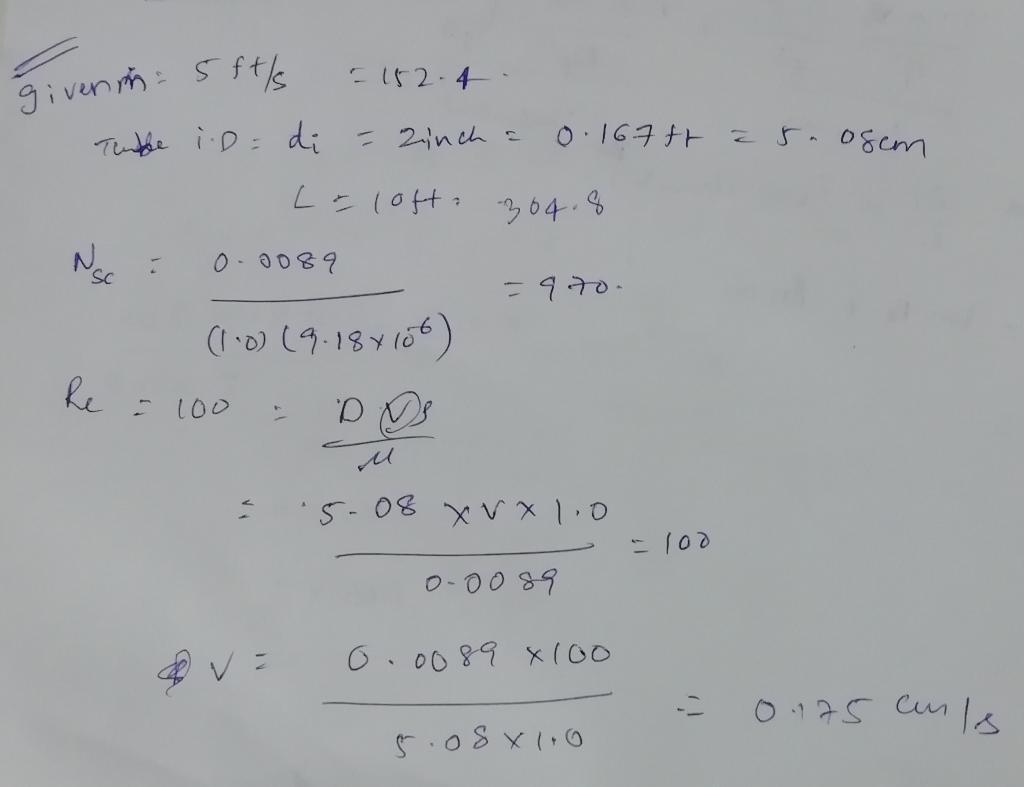 given ṁ = 5 ft/s = 152.4.
Tube i.D = di = 2inch = 0.167ft = 5.08cm
L = 10ft = 304.8
Nsc = 0.0089 / (1.0) (9.18×10^-6) = 970.
Re = 100 = DVρ / μ
= 5.08 × v × 1.0 / 0.0089 = 100
V = 0.0089 ×100 / 5.08×1.0 = 0.175 cm/s